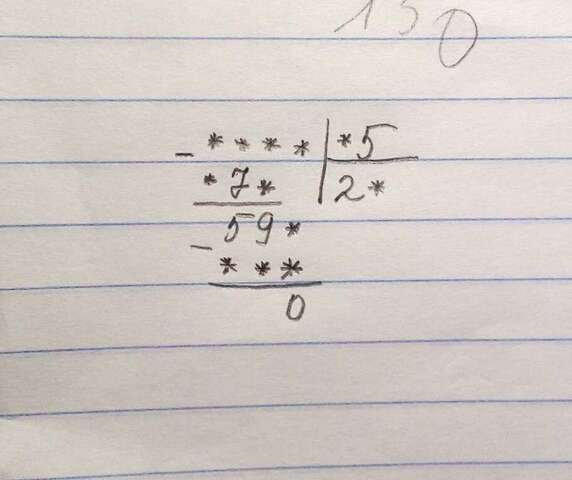 130
- * * * * | * 5
* 7 * | 2 *
- 5 9 *
* * *
0